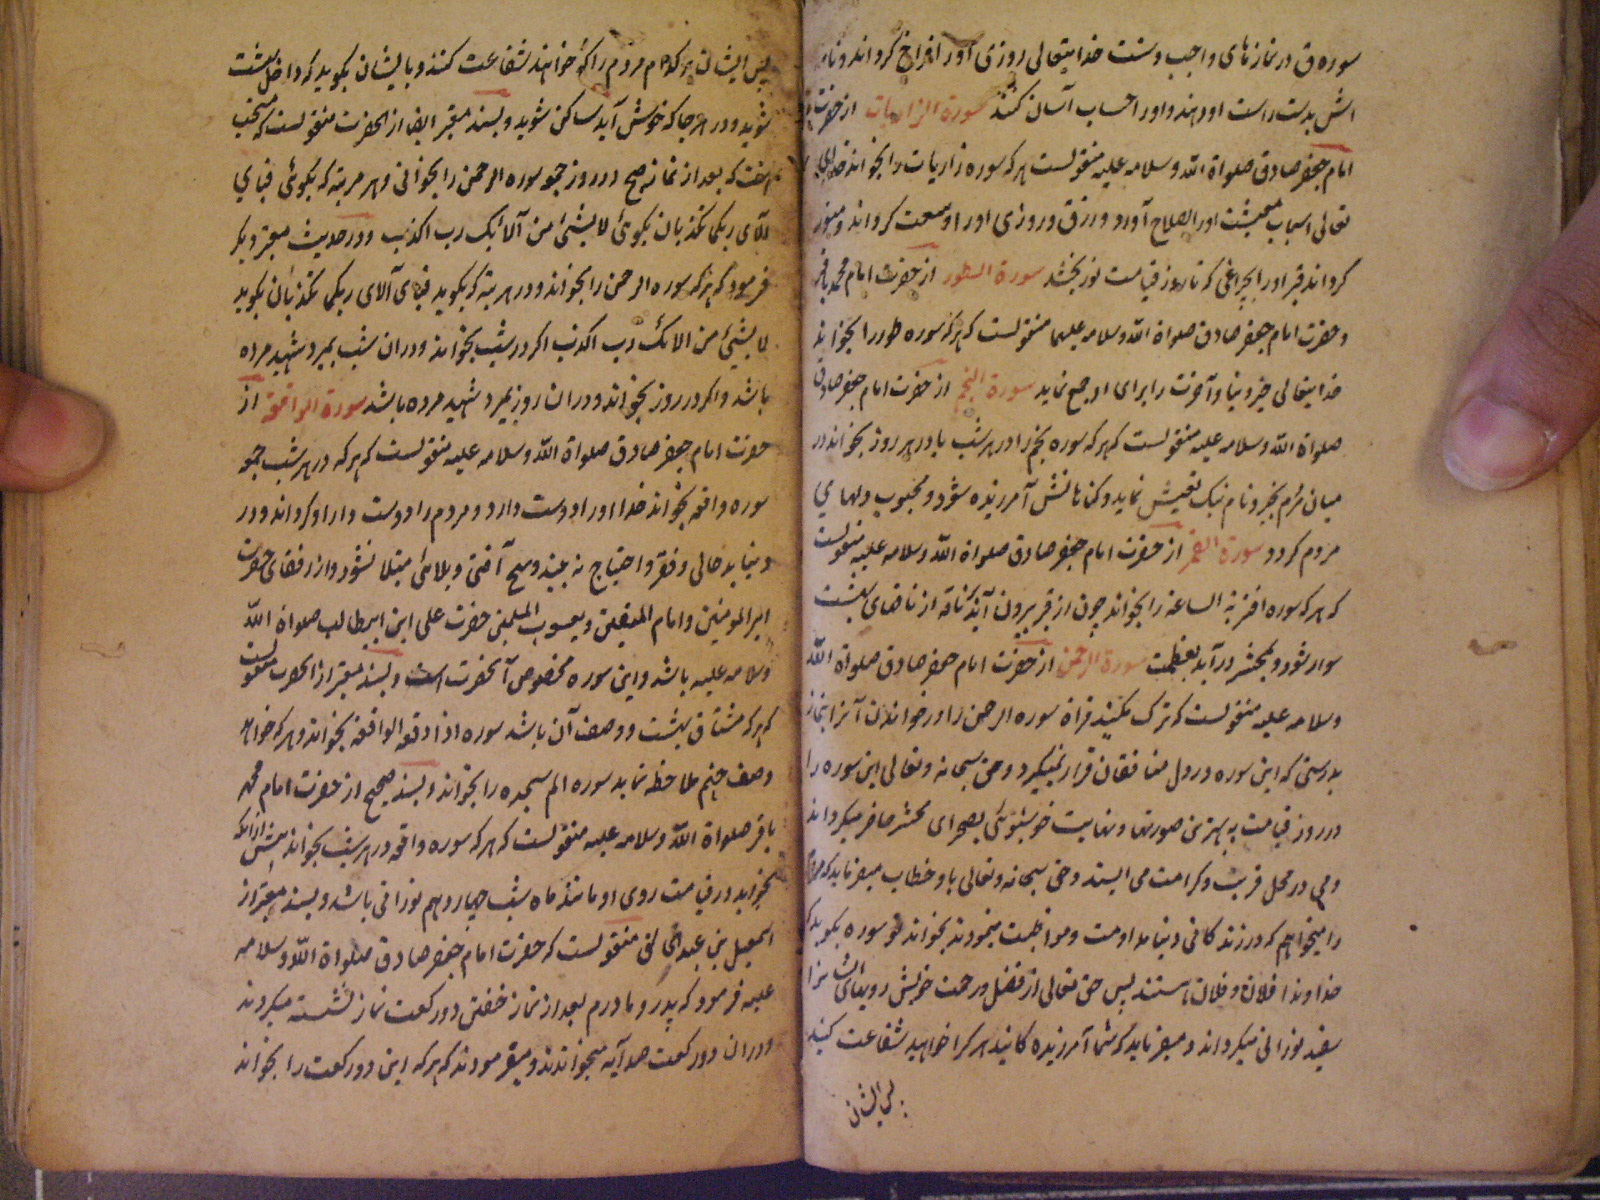 سوره ق در نمازهای واجب و سنت خدایتعالی روزی او را فراخ گرداند و نامه
اش بدست راست او دهند و او را حساب آسان کنند سورة الزاریات از حضرت
امام جعفر صادق صلواة الله وسلامه علیه منقولست هر که سوره زاریات را بخواند خدای
تعالی اسباب معیشت او را اصلاح آورد و رزق و روزی او را وسعت گرداند و منور
گرداند قبر او را بچراغی که تا روز قیامت نور بخشد سورة الطور از حضرت امام محمد باقر
و حضرت امام جعفر صادق صلواة الله وسلامه علیهما منقولست که هر که سوره طور را بخواند
خدایتعالی خیر دنیا و آخرت را برای او جمع نماید سورة النجم از حضرت امام جعفر صادق
صلواة الله وسلامه علیه منقولست که هر که سوره نجم را در هر شب یا در هر روز بخواند در
میان مردم بخیر و نام نیک تعیش نماید و گناهانش آمرزیده شود و محبوب دلهای
مردم گردد سورة القمر از حضرت امام جعفر صادق صلواة الله وسلامه علیه منقولست
که هر که سوره اقتربة الساعه را بخواند چون از قبر بیرون آید بناقه از ناقهای بهشت
سوار شود و بمحشر درآید بعظمت سورة الرحمن از حضرت امام جعفر صادق صلواة الله
وسلامه علیه منقولست که ترک مکنید قراة سوره الرحمن را و خواندن آنرا بنماز
بدرستی که این سوره در دل منافقان قرار نمیگیرد و حق سبحانه وتعالی این سوره را
در روز قیامت به بهترین صورتها و نهایت خوشبوئی بصحرای محشر حاضر میگرداند
و می در محل قربت و کرامت می ایستد و حق سبحانه وتعالی باو خطاب میفرماید که
را میخواهم که در زندگانی دنیا مداومت و مواظبت مینمودند بخواند تو سوره بگوید
خداوندا فلان و فلان هستند پس حق تعالی از فضل و رحمت خویش رویهای ایشانرا
سفید نورانی میگرداند و میفرماید که شما آمرزیده کانید هر کرا خواهید شفاعت کنید
پس ایشان
پس ایشان هر کدام مردم را که خواهند شفاعت کنند و بایشان بگوید که داخل بهشت
شوید و در هر جا که خوش آید ساکن شوید و بسند معتبر ایضا از انحضرت منقولست که مستحب
است که بعد از نماز صبح در روز جمعه سوره الرحمن را بخوانی و هر مرتبه که بگوئی فبای
الآی ربکما تکذبان بگوئی لا بشئ من آلائک رب اکذب و در حدیث معتبر دیگر
فرمود که هر که سوره الرحمن را بخواند و در هر مرتبه که بگوید فبای آلای ربکما تکذبان بگوید
لا بشئ من الائک رب اکذب اگر در شب بخواند و در ان شب بمیرد شهید مرده
باشد و اگر در روز بخواند و در ان روز بمیرد شهید مرده باشد سورة الواقعة از
حضرت امام جعفر صادق صلواة الله وسلامه علیه منقولست که هر که در هر شب جمعه
سوره واقعه بخواند خدا او را دوست دارد و مردم را دوست دار او گرداند و در
دنیا بدحالی و فقر و احتیاج نه بیند و هیچ آفتی و بلائی مبتلا نشود و از رفقای حضرت
امیر المومنین و امام المتقین و یعسوب المسلمین حضرت علی ابن ابیطالب صلواة الله
وسلامه علیه باشد و این سوره مخصوص آنحضرت است و بسند معتبر از انحضرت منقولست
که هر که مشتاق بهشت و وصف آن باشد سوره اذا وقعه الواقعه بخواند و هر که خواهد
وصف جهنم ملاحظه نماید سوره الم سجده را بخواند و بسند صحیح از حضرت امام محمد
باقر صلواة الله وسلامه علیه منقولست که هر که سوره واقعه در هر شب بخواند پیش از انکه
بخوابد در قیامت روی او مانند ماه شب چهاردهم نورانی باشد و بسند معتبر از
اسمعیل بن عبدالخالق منقولست که حضرت امام جعفر صادق صلواة الله وسلامه
علیه فرمود که پدر و مادرم بعد از نماز خفتن دو رکعت نماز نشسته میکردند
و در ان دو رکعت صد آیه میخواندند و میفرمودند که هر که این دو رکعت را بخواند